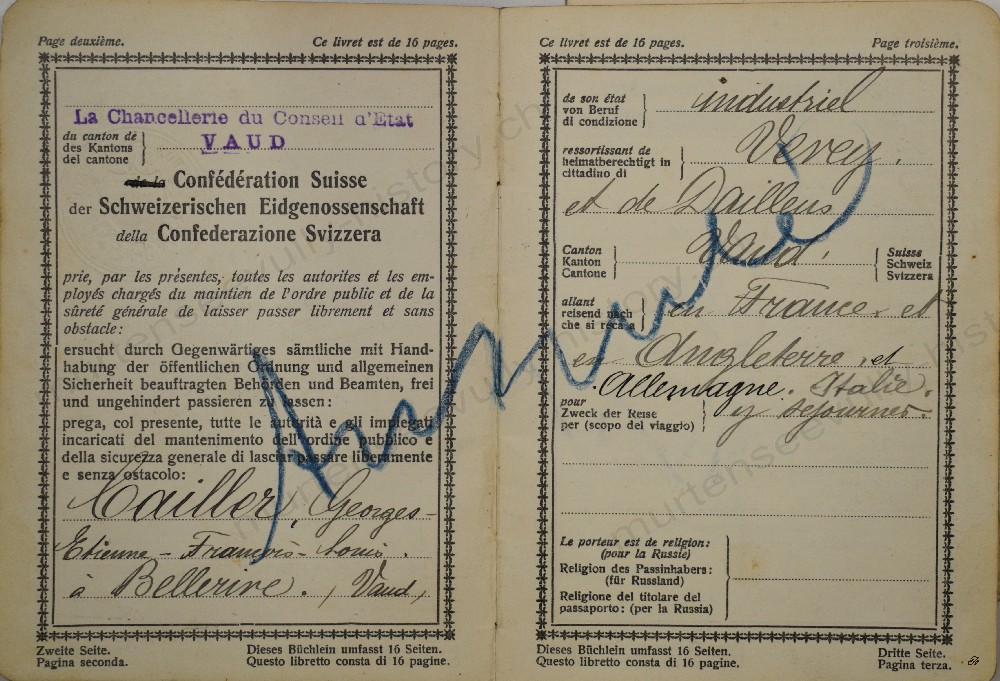 Page deuxième.
Ce livret est de 16 pages.
La Chancellerie du Conseil d'Etat
du canton de
des Kantons
del cantone
VAUD
de la Confédération Suisse
der Schweizerischen Eidgenossenschaft
della Confederazione Svizzera
prie, par les présentes, toutes les autorites et les em-
ployés chargés du maintien de l'ordre public et de la
sûreté générale de laisser passer librement et sans
obstacle:
ersucht durch Gegenwärtiges sämtliche mit Hand-
habung der öffentlichen Ordnung und allgemeinen
Sicherheit beauftragten Behörden und Beamten, frei
und ungehindert passieren zu lassen:
prega, col presente, tutte le autorità e gli impiegati
incaricati del mantenimento dell'ordine pubblico e
della sicurezza generale di lasciar passare liberamente
e senza ostacolo:
Cailler, Georges-
Etienne-François-Louis.
à Bellerive. (Vaud)
Zweite Seite.
Pagina seconda.
Dieses Büchlein umfasst 16 Seiten.
Questo libretto consta di 16 pagine.
Ce livret est de 16 pages.
Page troisième.
de son état
von Beruf
di condizione
industriel
ressortissant de
heimatberechtigt in
cittadino di
Vevey.
et de Daillens
Canton
Kanton
Cantone
Vaud.
Suisse
Schweiz
Svizzera
allant
reisend nach
che si reca a
en France et
en Angleterre, et
Allemagne. Italie.
pour
Zweck der Reise
per (scopo del viaggio)
y séjourner.
Annulé
Le porteur est de religion:
(pour la Russie)
Religion des Passinhabers:
(für Russland)
Religione del titolare del
passaporto: (per la Russia)
Dieses Büchlein umfasst 16 Seiten.
Questo libretto consta di 16 pagine.
Dritte Seite.
Pagina terza.